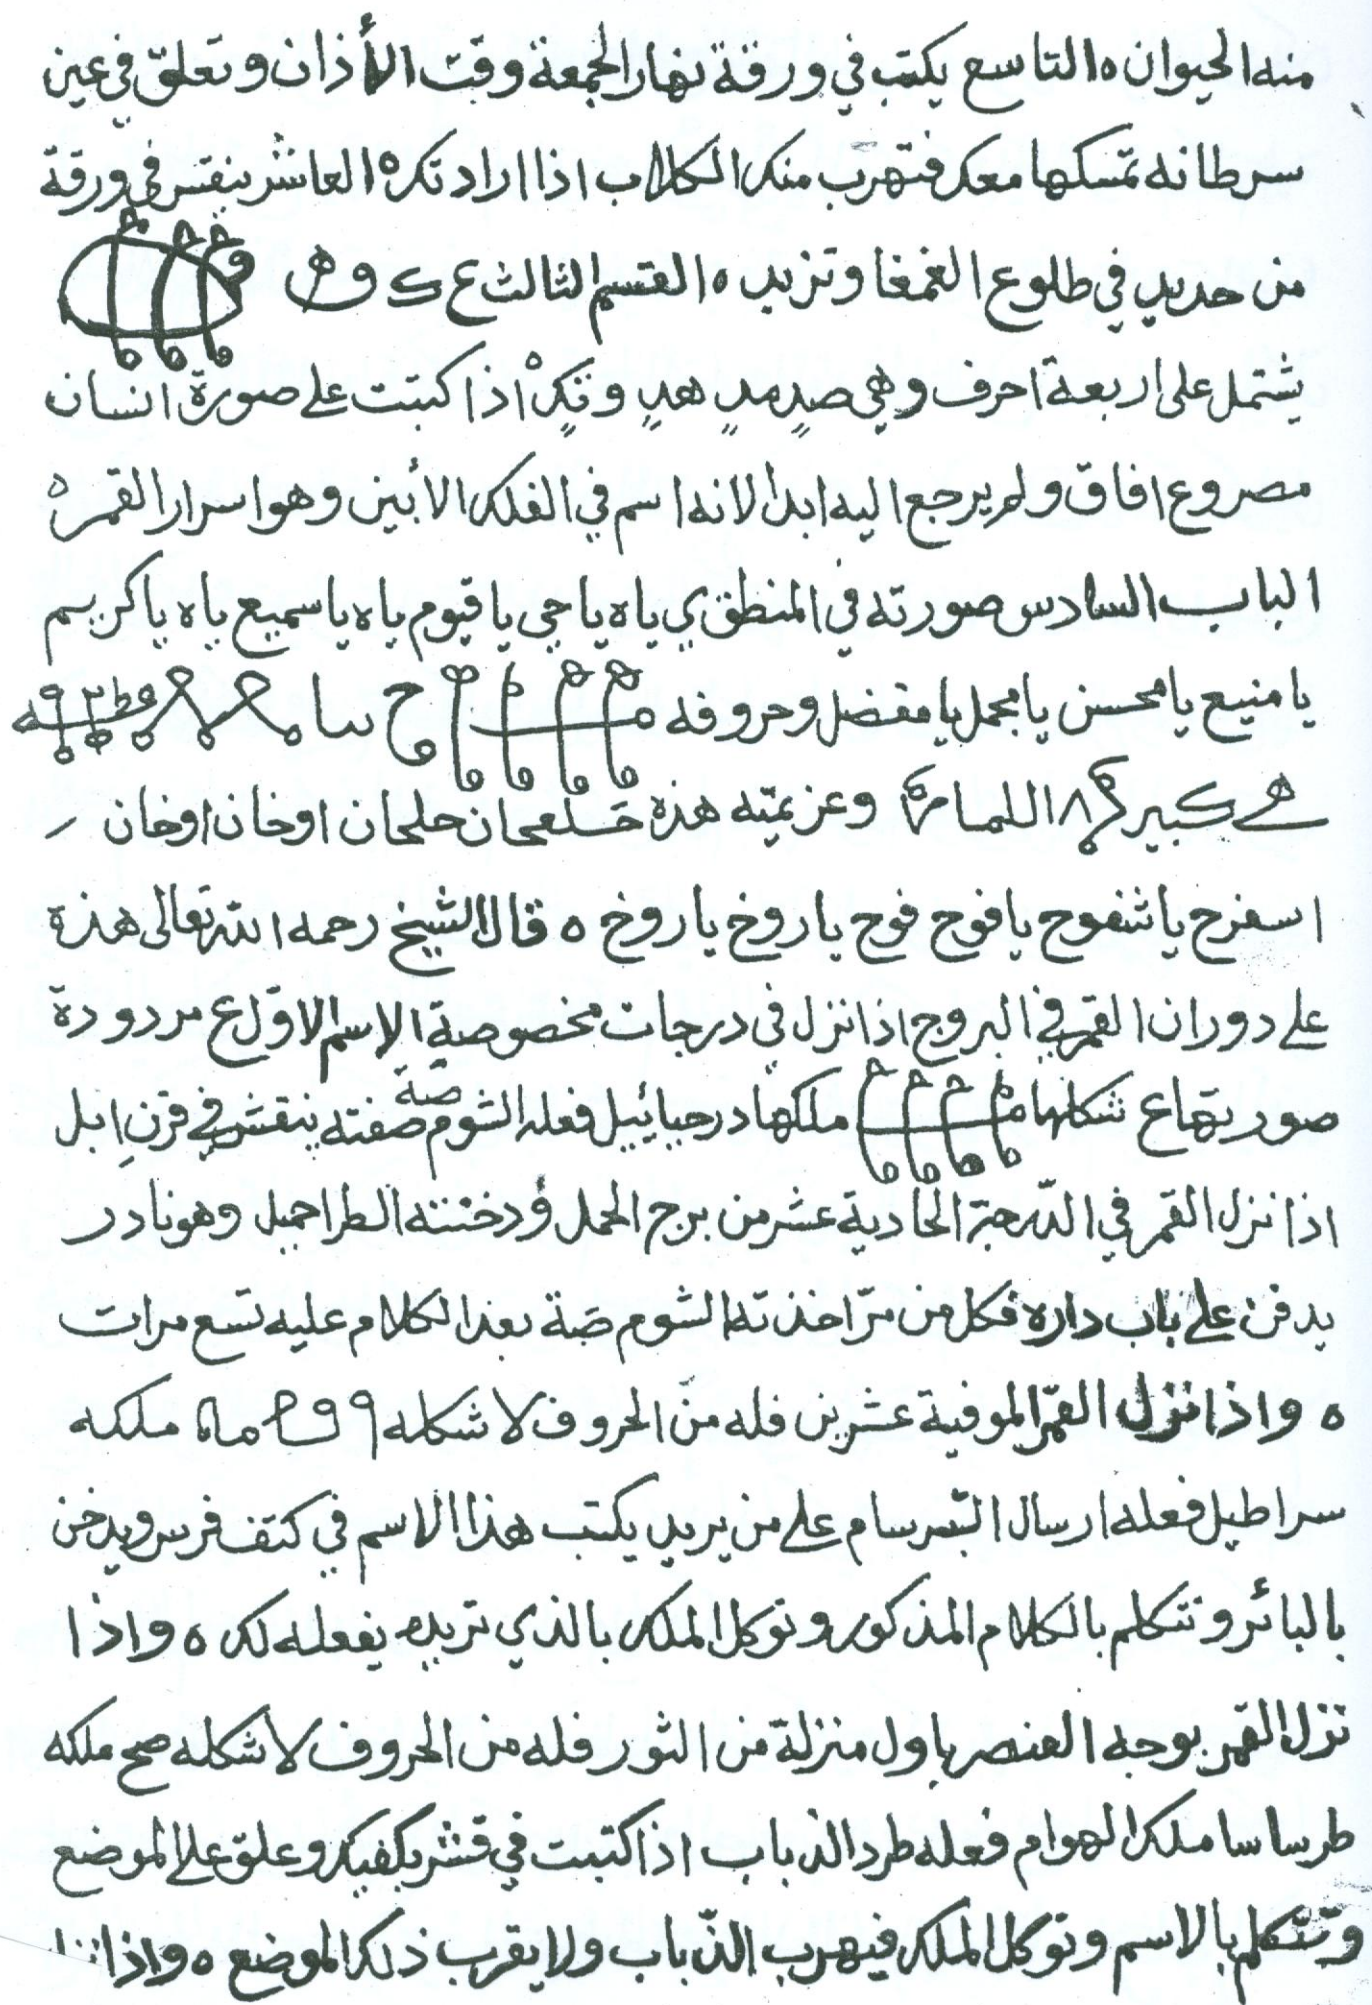 منه الحيوان ه التاسع يكتب في ورقة نهار الجمعة وقت الأذان وتعلق في عين
سرطانه تمسكها معك فتهرب منك الكلاب اذا اراد تكره العاشر ينقش في ورقة
من حديد في طلوع الغمغا وتزيد ه القسم الثالث ع ك و هـ
يشتمل على اربعة احرف وهي صدٍ مدٍ هدٍ وتكٍ اذا كتبت على صورة انسان
مصروع افاق ولم يرجع اليه ابدا لانه اسم في الفلك الأبين وهو اسرار القمر ه
الباب السادس صورته في المنطق ي ياه يا حي يا قيوم ياه يا سميع ياه يا كريم
يا منيع يا محسن يا مجمل يا مفضل وحروفه
كبير وعزيمته هذه حلحان اوخان اوخان
اسفرخ يا شفوح يا فوح فوح يا روخ يا روخ ه قال الشيخ رحمه الله تعالى هذه
على دوران القمر في البروج اذا نزل في درجات مخصوصة الاسم الاول ع مردودة
صورتها ع شكلها ملكها درحيائيل فعله الشوم صة صفته ينقش في قرن ابل
اذا نزل القمر في الدرجة الحادية عشر من برج الحمل ودخنته الطراحيل وهو نادر
يدفن على باب داره فكل من مرّ اخذته الشوم صَة بعد الكلام عليه تسع مرات
ه واذا نزل القمر الموفية عشرين فله من الحروف لا شكله ملكه
سراطيل فعله ارسال البرسام على من يريد يكتب هذا الاسم في كتف فرس ويدخن
بالبائر وتتكلم بالكلام المذكور وتوكل الملك بالذي تريده يفعله لك ه واذا
نزل القمر بوجه العنصر باول منزلة من الثور فله من الحروف لا شكله صح ملكه
طرساسا ملك الهوام فعله طرد الذباب اذا كتبت في قشر وعلق على الموضع
وتتكلم بالاسم وتوكل الملك فيهرب الذّباب ولا يقرب ذلك الموضع ه واذا